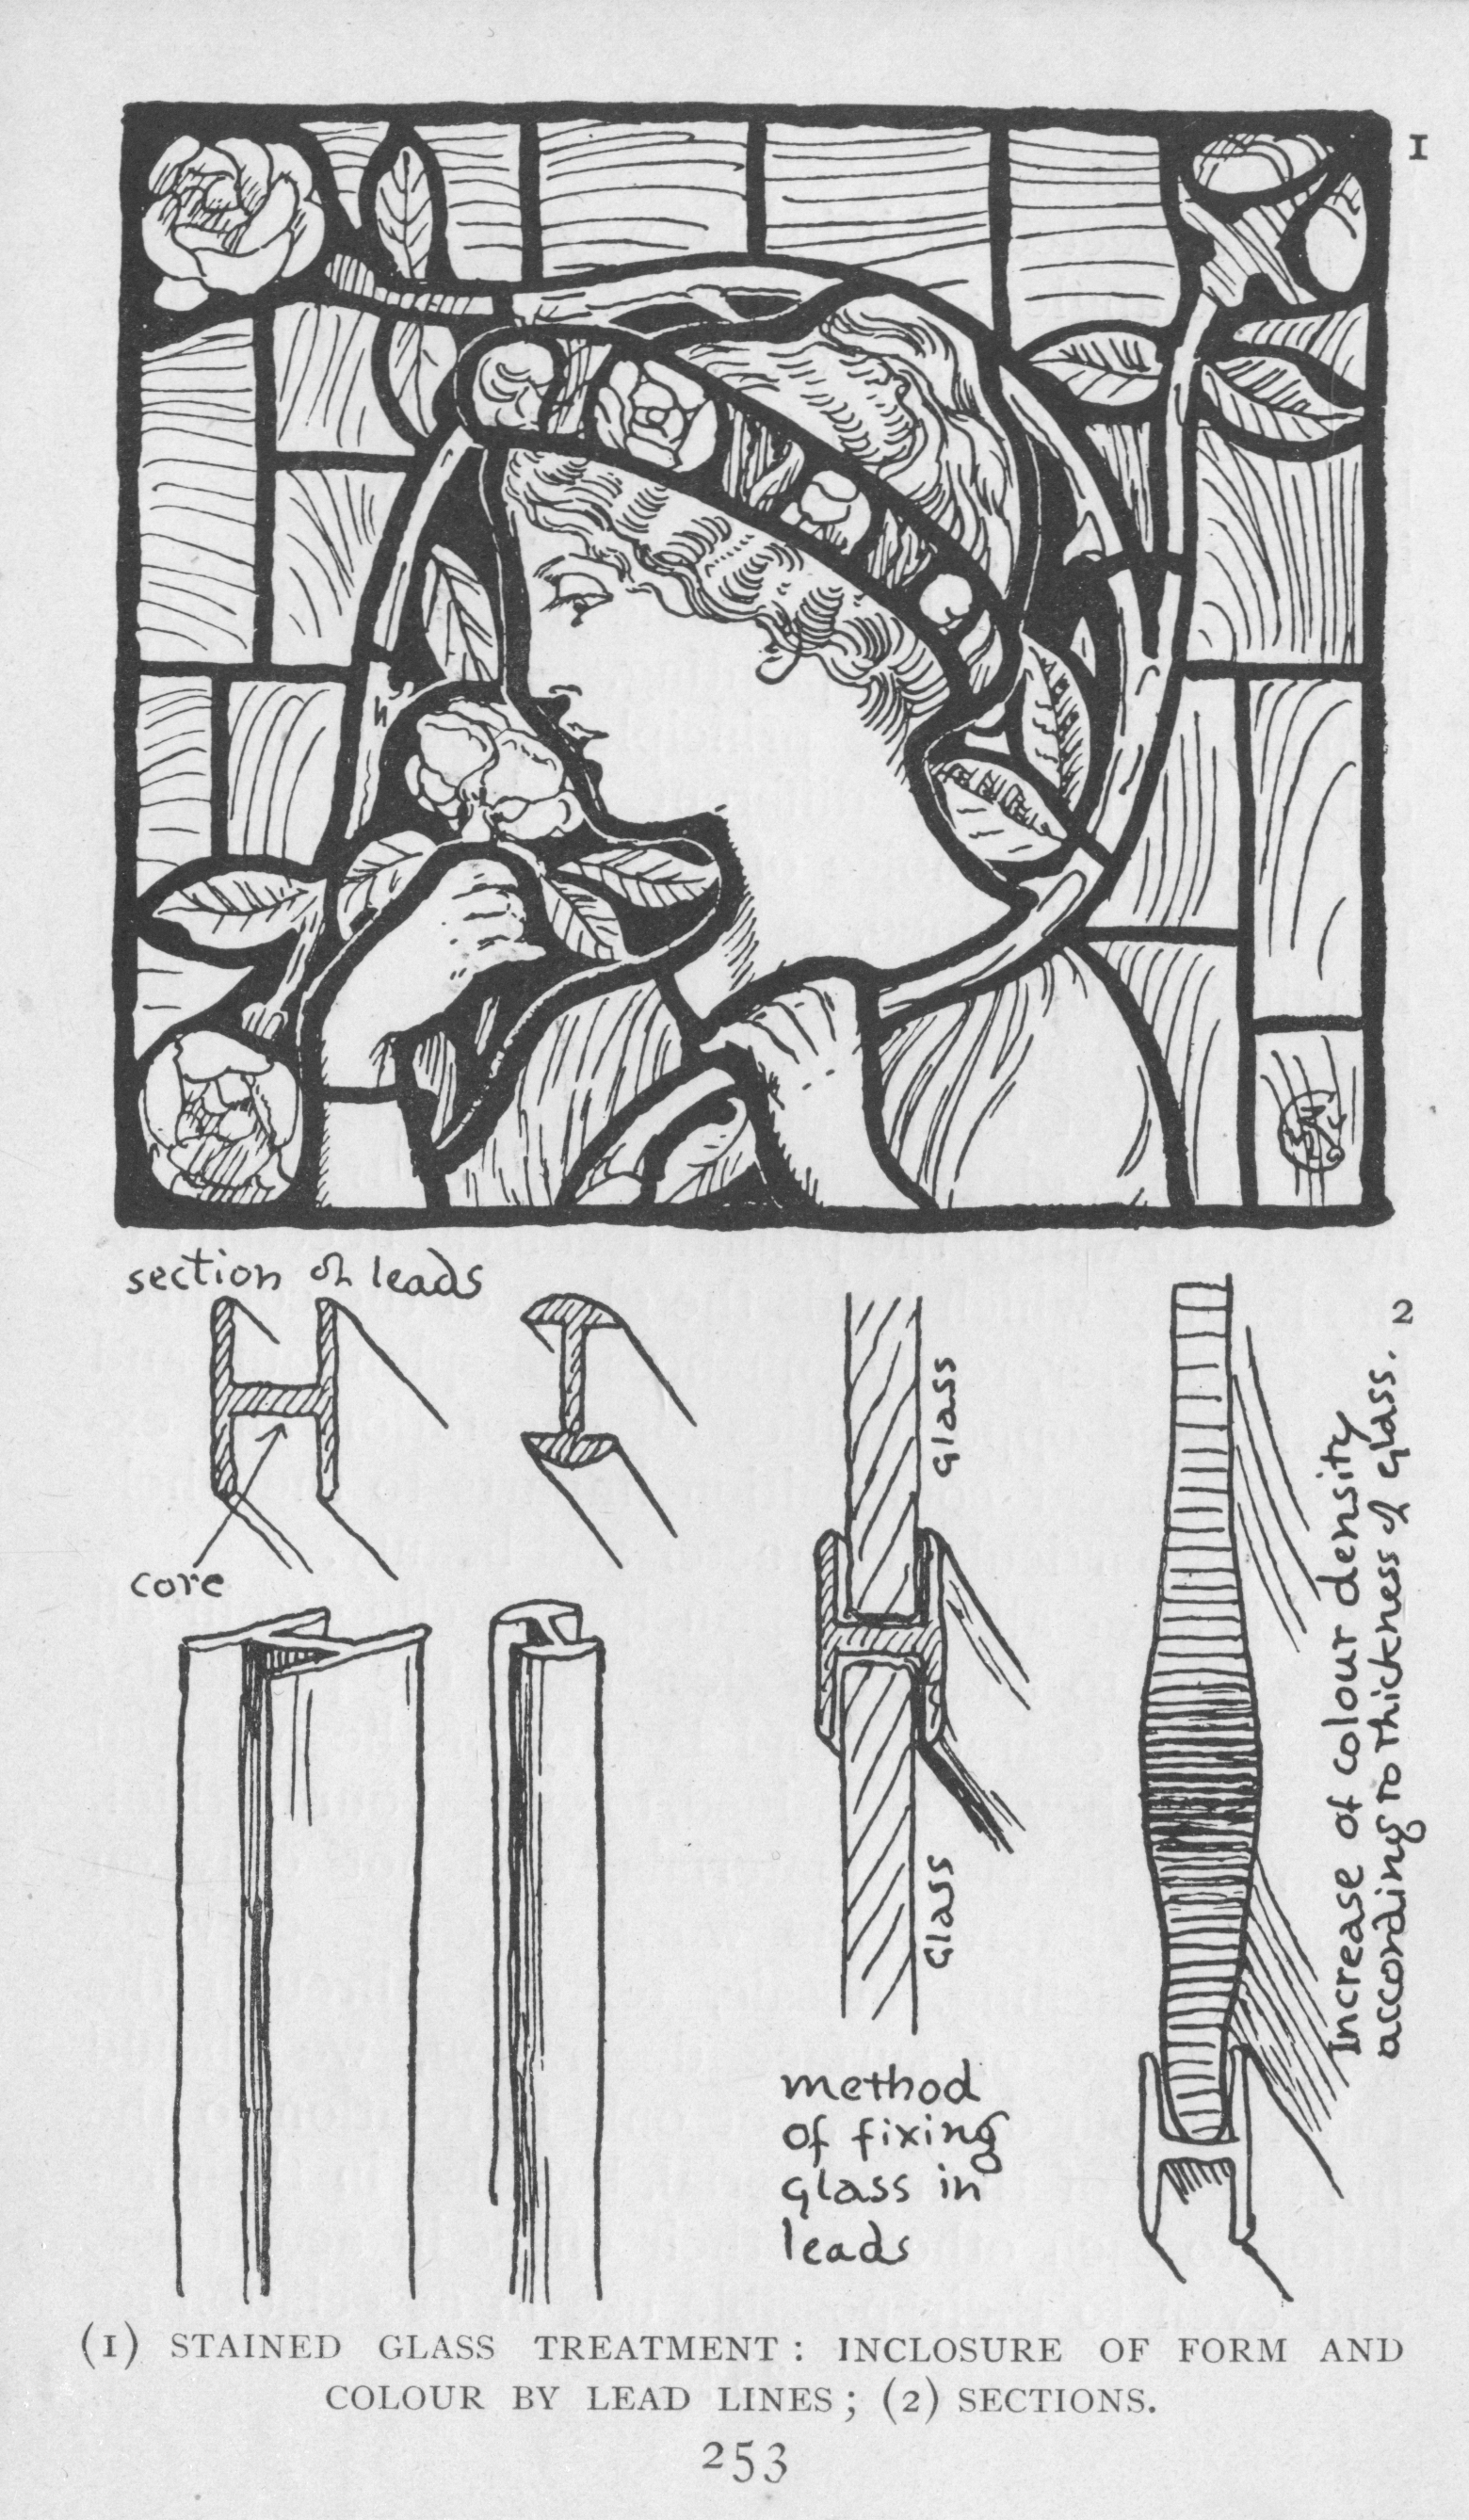 1
section of leads
core
2
Glass
Glass
method
of fixing
glass in
leads
Increase of colour density
according to thickness of glass.
(1) STAINED GLASS TREATMENT: INCLOSURE OF FORM AND
COLOUR BY LEAD LINES; (2) SECTIONS.
253